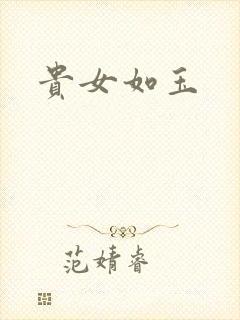 貴女如玉
范婧睿